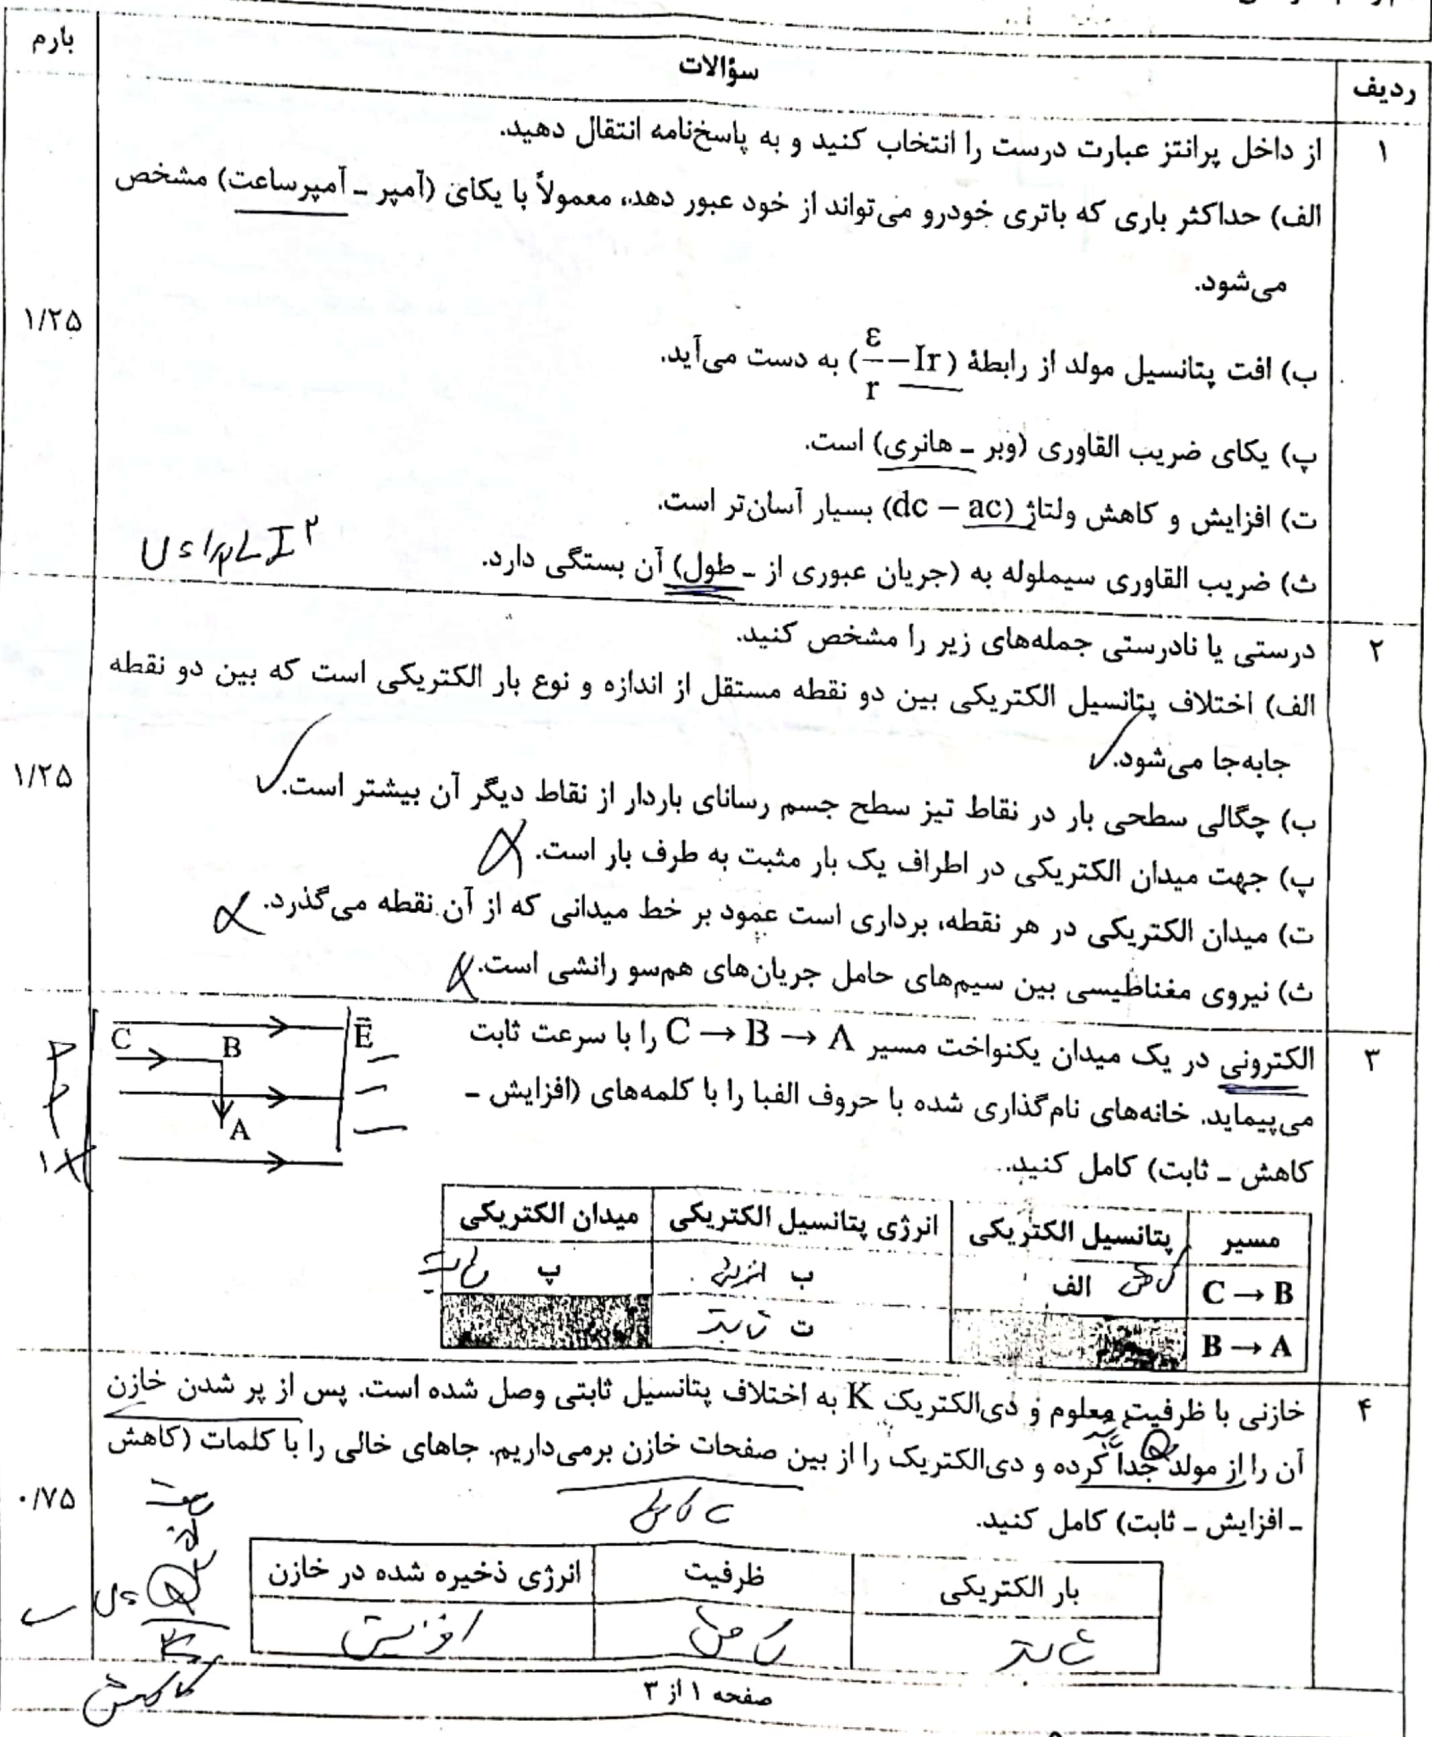 ردیف سؤالات بارم
۱ از داخل پرانتز عبارت درست را انتخاب کنید و به پاسخ‌نامه انتقال دهید.
الف) حداکثر باری که باتری خودرو می‌تواند از خود عبور دهد، معمولاً با یکای (آمپر ـ آمپرساعت) مشخص
می‌شود.
۱/۲۵
ب) افت پتانسیل مولد از رابطهٔ (Ir – ε/r) به دست می‌آید.
پ) یکای ضریب القاوری (وبر ـ هانری) است.
ت) افزایش و کاهش ولتاژ (dc – ac) بسیار آسان‌تر است.
ث) ضریب القاوری سیملوله به (جریان عبوری از ـ طول) آن بستگی دارد.
۲ درستی یا نادرستی جمله‌های زیر را مشخص کنید.
الف) اختلاف پتانسیل الکتریکی بین دو نقطه مستقل از اندازه و نوع بار الکتریکی است که بین دو نقطه
جابه‌جا می‌شود. ✓
۱/۲۵
ب) چگالی سطحی بار در نقاط تیز سطح جسم رسانای باردار از نقاط دیگر آن بیشتر است. ✓
پ) جهت میدان الکتریکی در اطراف یک بار مثبت به طرف بار است.
ت) میدان الکتریکی در هر نقطه، برداری است عمود بر خط میدانی که از آن نقطه می‌گذرد.
ث) نیروی مغناطیسی بین سیم‌های حامل جریان‌های هم‌سو رانشی است.
۳ الکترونی در یک میدان یکنواخت مسیر C → B → A را با سرعت ثابت
می‌پیماید. خانه‌های نام‌گذاری شده با حروف الفبا را با کلمه‌های (افزایش ـ
کاهش ـ ثابت) کامل کنید.
C B E
A
۱
مسیر پتانسیل الکتریکی انرژی پتانسیل الکتریکی میدان الکتریکی
C → B الف کاهش ب افزایش پ ثابت
B → A ت ثابت
۴ خازنی با ظرفیت معلوم و دی‌الکتریک K به اختلاف پتانسیل ثابتی وصل شده است. پس از پر شدن خازن
آن را از مولد جدا کرده و دی‌الکتریک را از بین صفحات خازن برمی‌داریم. جاهای خالی را با کلمات (کاهش
ـ افزایش ـ ثابت) کامل کنید.
۰/۷۵
بار الکتریکی ظرفیت انرژی ذخیره شده در خازن
ثابت کاهش افزایش
کاهش
صفحه ۱ از ۳